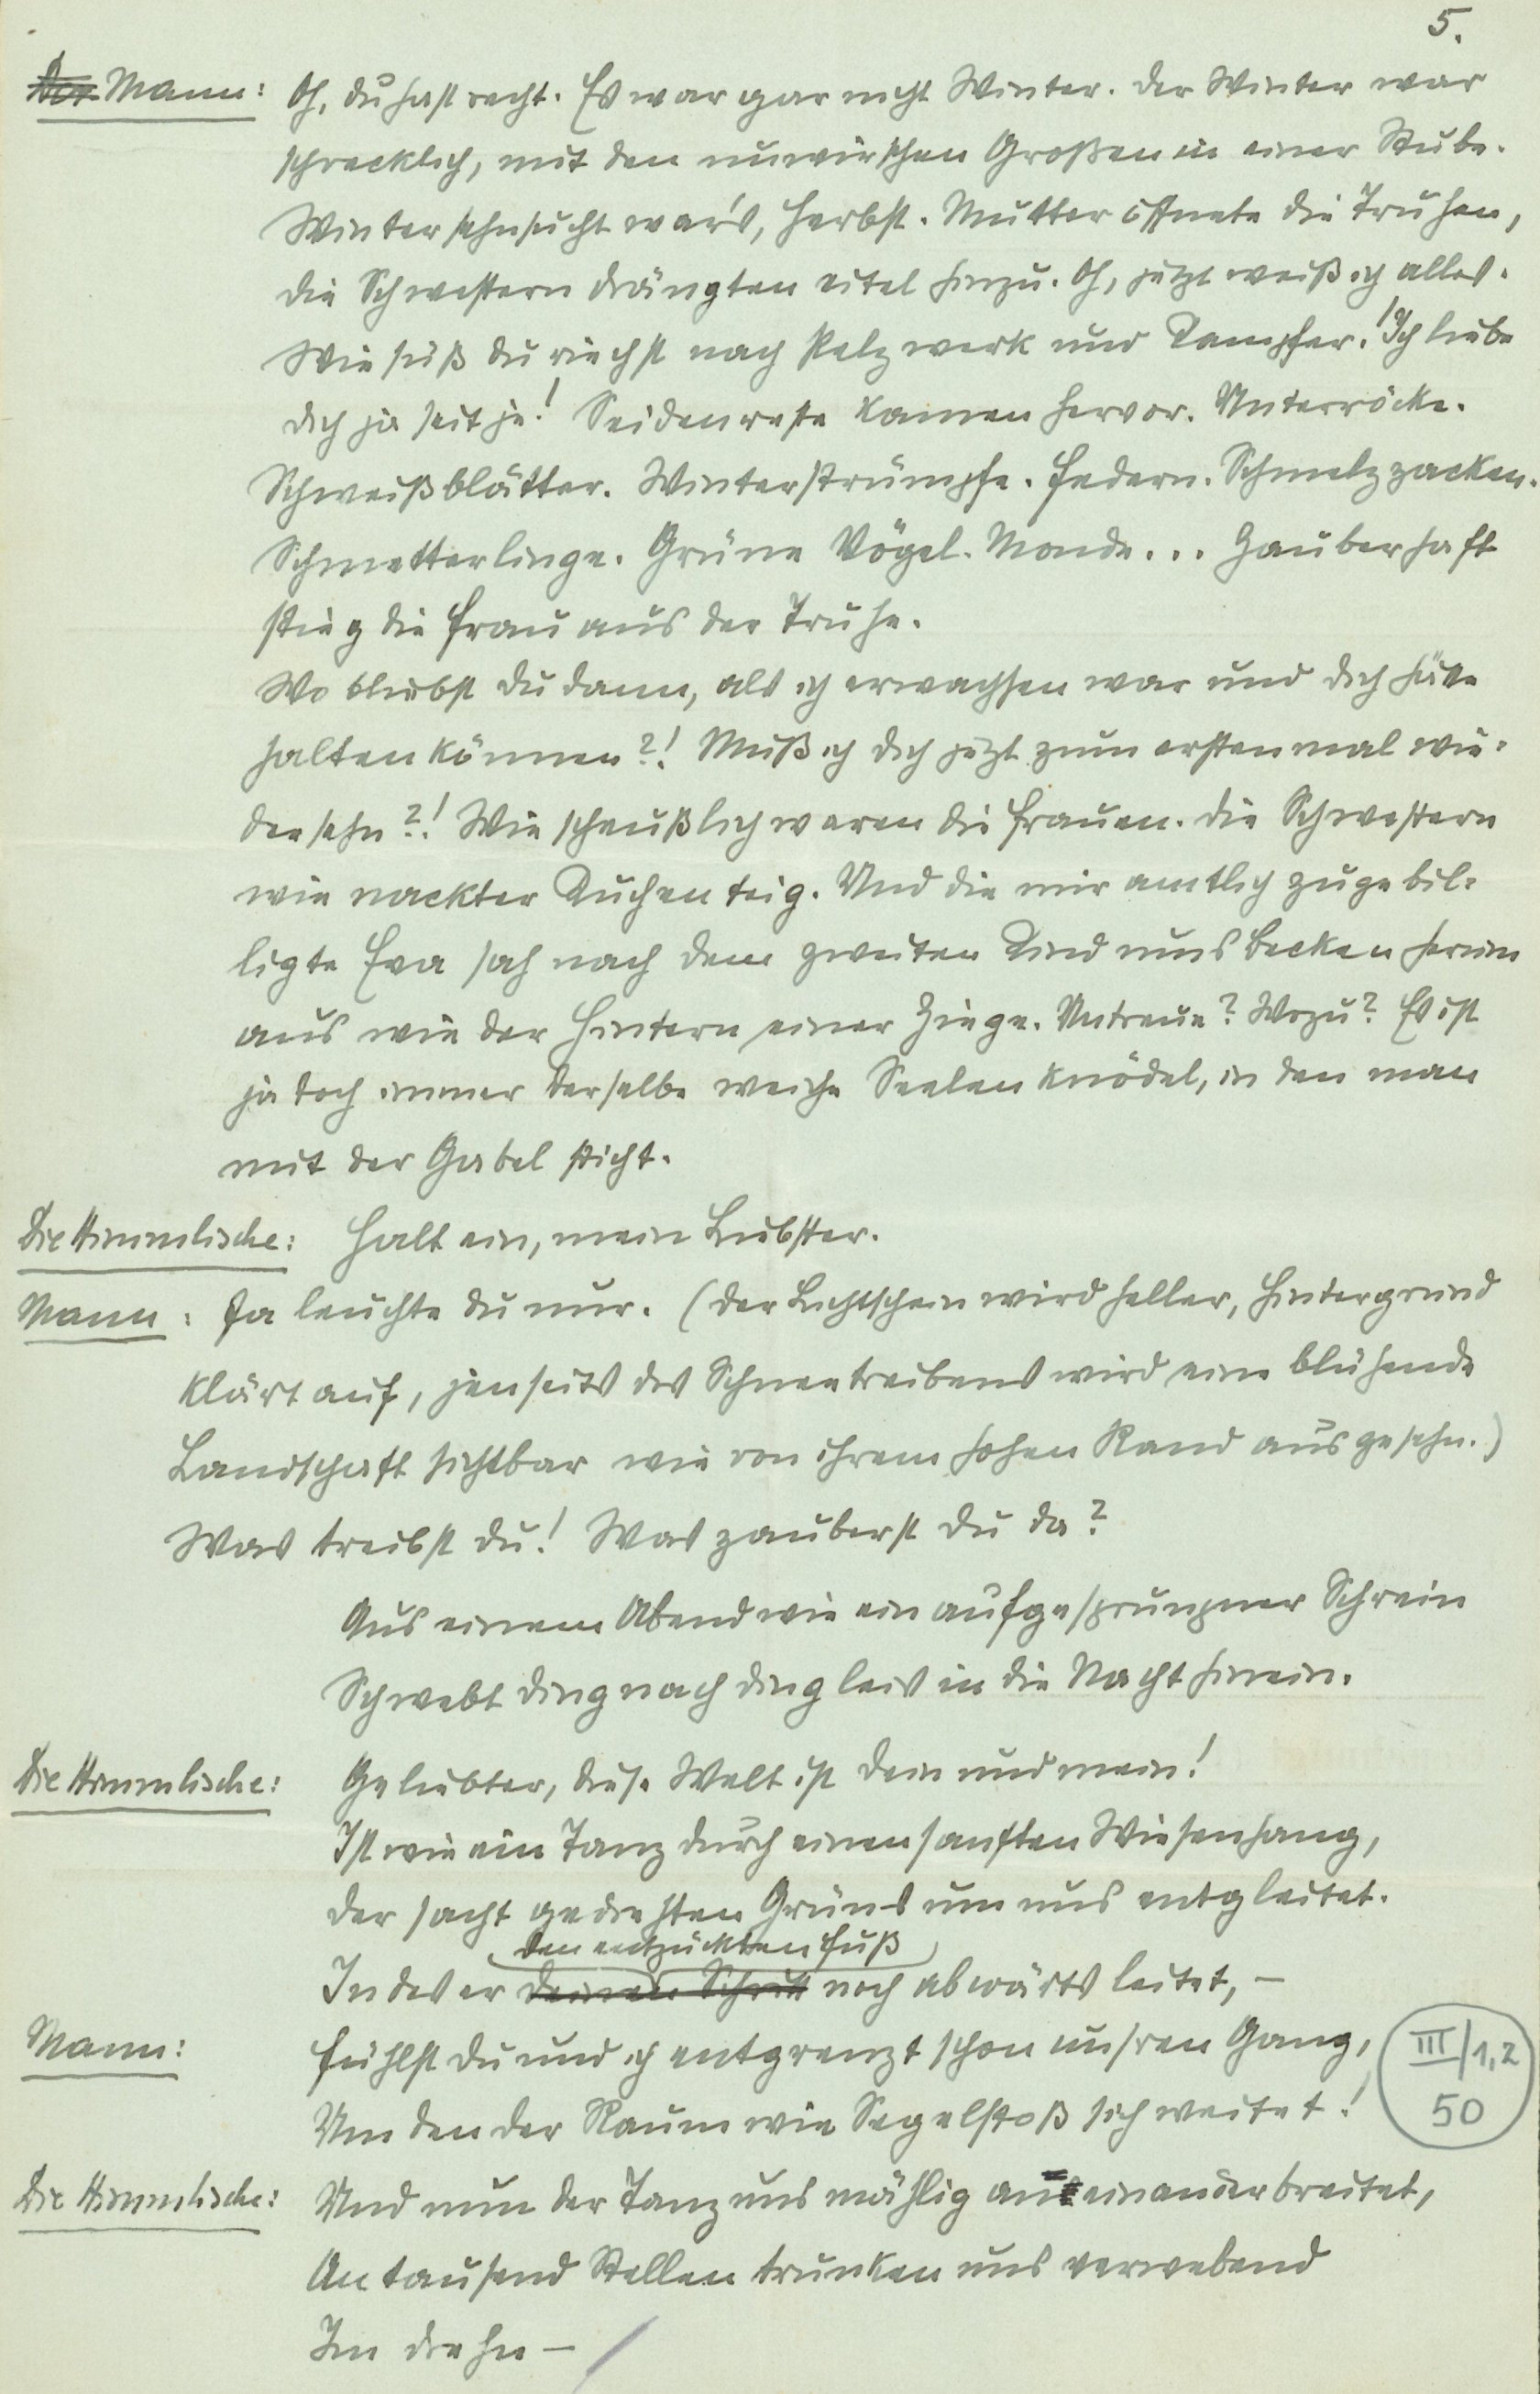 5.
Der Mann: Oh, du hast recht. Es war gar nicht Winter. Der Winter war
schrecklich, mit den unwirschen Großen in einer Stube.
Wintersehnsucht war's, Herbst. Mutter öffnete die Truhen,
die Schwestern drängten eitel hinzu. Oh, jetzt weiß ich alles.
Wie süß du riechst nach Pelzwerk und Kampfer! Ich liebe
dich ja seit je! Seidenreste kamen hervor. Unterröcke.
Schweißblätter. Winterstrümpfe. Federn. Schmelzzacken.
Schmetterlinge. Grüne Vögel. Monde... Zauberhaft
stieg die Frau aus der Truhe.
Wo bliebst du dann, als ich erwachsen war und dich hätte
halten können?! Muß ich dich jetzt zum erstenmal wie-
dersehn?! Wie scheußlich waren die Frauen. Die Schwestern
wie nackter Kuchenteig. Und die mir amtlich zugebil-
ligte Eva sah nach dem zweiten Kind ums Becken herum
aus wie der Hintern einer Ziege. Untreue? Wozu? Es ist
ja doch immer derselbe weiche Seelenknödel, in den man
mit der Gabel sticht.
Die Himmlische: Halt ein, mein Liebster.
Mann: Ja leuchte du nur. (Der Lichtschein wird heller, Hintergrund
klärt auf, jenseits des Schneetreibens wird eine blühende
Landschaft sichtbar wie von ihrem hohen Rand aus gesehn.)
Was treibst du! Was zauberst du da?
Aus einem Abend wie ein aufgesprungner Schrein
Schwebt Ding nach Ding leis in die Nacht hinein.
Die Himmlische: Geliebter, diese Welt ist dein und mein!
Ist wie ein Tanz durch einen sanften Wiesenhang,
Der sacht gedrehten Grüns um uns entgleitet.
den entzückten Fuß
Indes er deinen Schritt noch abwärts leitet, –
Mann: Fühlst du und ich entgrenzt schon unsren Gang,
Um den der Raum wie Segelstoß sich weitet!
III/1,2
50
Die Himmlische: Und nun der Tanz uns mählig aneinander breitet,
An tausend Stellen trunken uns verwebend
Im Drehn –